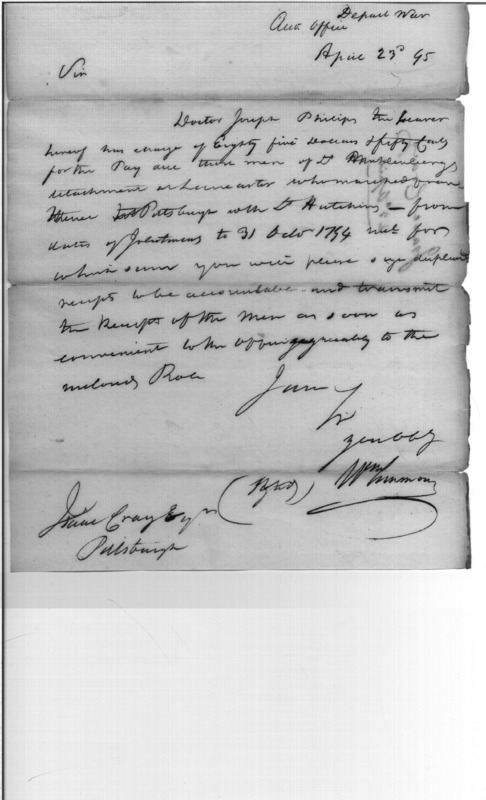 Depart War
Acct Office
April 23d 95
Sir
Doctor Joseph Philips the bearer
hereof has charge of Eighty five Dollars & fifty Cents
for the Pay due three men of Lt Muhlenbergs
detachment at Lancaster who marched from
thence to Pittsburgh with Lt Hutchins — from
dates of Inlistment to 31 Octo 1794 for
which sum you will please sign duplicate
receipts to be accountable and transmit
the Receipt of the Men as soon as
convenient to the Office agreeably to the
inclosed Roll
I am
Sir
yr ob
Wm Simmons
Isaac Craig Esqr
Pittsburgh